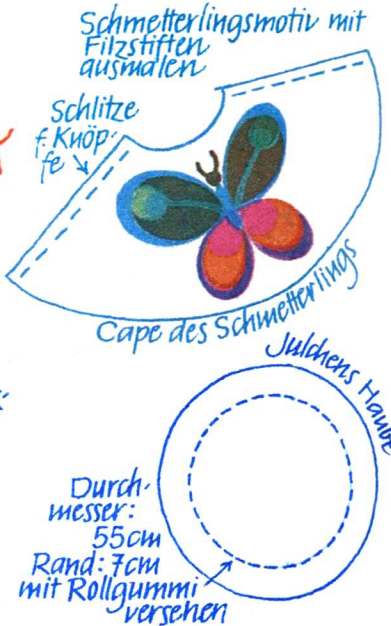 Schmetterlingsmotiv mit
Filzstiften
ausmalen
Schlitze
f. Knöp-
fe
Cape des Schmetterlings
Julchens Haube
Durch-
messer:
55cm
Rand: 7cm
mit Rollgummi
versehen